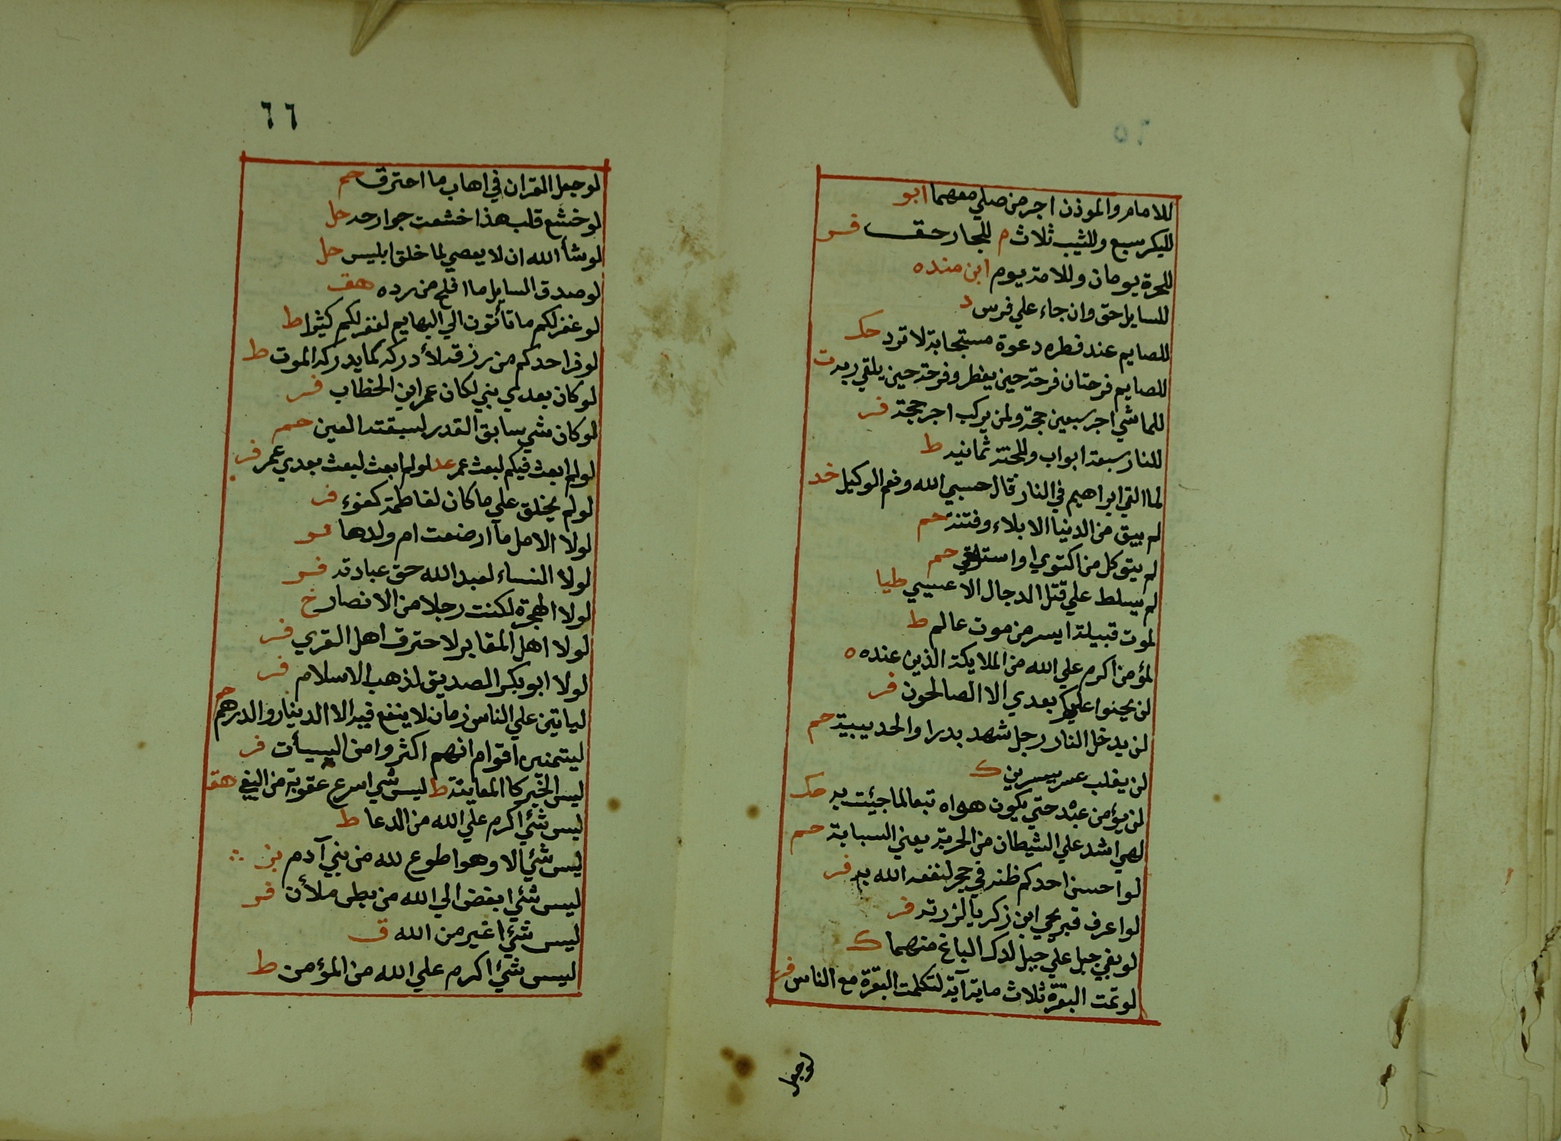 ٦٥
للامام والموذن اجر من صلي معهما ابو
للبكر سبع وللثيب ثلاث م للجار حق فر
للحرة يومان وللامة يوم ابن منده
للسايل حق وان جاء علي فرس د
للصايم عند فطره دعوة مستجابة لا ترد حك
للصايم فرحتان فرحة حين يفطر وفرحة حين يلقي ربه ت
للماشي اجر سبعين حجة ولمن يركب اجر حجة فر
للنار سبعة ابواب وللجنة ثمانية ط
لما القي ابراهيم في النار قال حسبي الله ونعم الوكيل خد
لم يبق من الدنيا الا بلاء وفتنة حم
لم يتوكل من اكتوي او استرقي حم
لم يسلط علي قتل الدجال الا عيسي طيا
لموت قبيلة ايسر من موت عالم ط
لمؤمن اكرم علي الله من الملايكة الذين عنده ه
لن يحنوا عليكم بعدي الا الصالحون فر
لن يدخل النار رجل شهد بدرا والحديبية حم
لن يغلب عسر يسرين ك
لن يؤمن عبد حتي يكون هواه تبعا لما جيئت به حك
لهي اشد علي الشيطان من الحربة يعني السبابة حم
لو احسن احدكم ظنه في حجر لنفعه الله به فر
لو اعرف قبر يحي ابن زكريا لزرته فر
لو بغي جبل علي جبل لدك الباغ منهما ك
لو تمت البقرة ثلاث ماية آية لتكلمت البقرة مع الناس فر
لو جعل
٦٦
لو جعل القران في اهاب ما احترق حم
لو خشع قلب هذا خشعت جوارحه حل
لو شأ الله ان لا يعصي لما خلق ابليس حل
لو صدق السايل ما افلح من رده هق
لو غفر لكم ما تأتون الي البهايم لغفر لكم كثيرا ط
لو فر احدكم من رزقه لأدركه كما يدركه الموت ط
لو كان بعدي نبي لكان عمر ابن الخطاب فر
لو كان شي سابق القدر لسبقته العين حم
لو لم ابعث فيكم لبعث عمر عد لو لم ابعث لبعث بعدي عمر فر
لو لم يخلق علي ما كان لفاطمة كفوء فر
لولا الامل مآ ارضعت ام ولدها فر
لولا النساء لعبد الله حق عبادته فر
لولا الهجرة لكنت رجلا من الانصار خ
لولا اهل المقابر لاحترق اهل القري فر
لولا ابو بكر الصديق لذهب الاسلام فر
لياتين علي الناس زمان لا ينفع فيه الا الدينار والدرهم حم
ليتمنين اقوام انهم اكثروا من السيأت فر
ليس الخبر كا المعاينة ط ليس شي اسرع عقوبة من البغي هق
ليس شئ اكرم علي الله من الدعا ط
ليس شئ الا وهو اطوع لله من بني آدم بز
ليس شئ ابغض الي الله من بطن ملأن فر
ليس شئ اغير من الله ق
ليس شئ اكرم علي الله من المؤمن ط